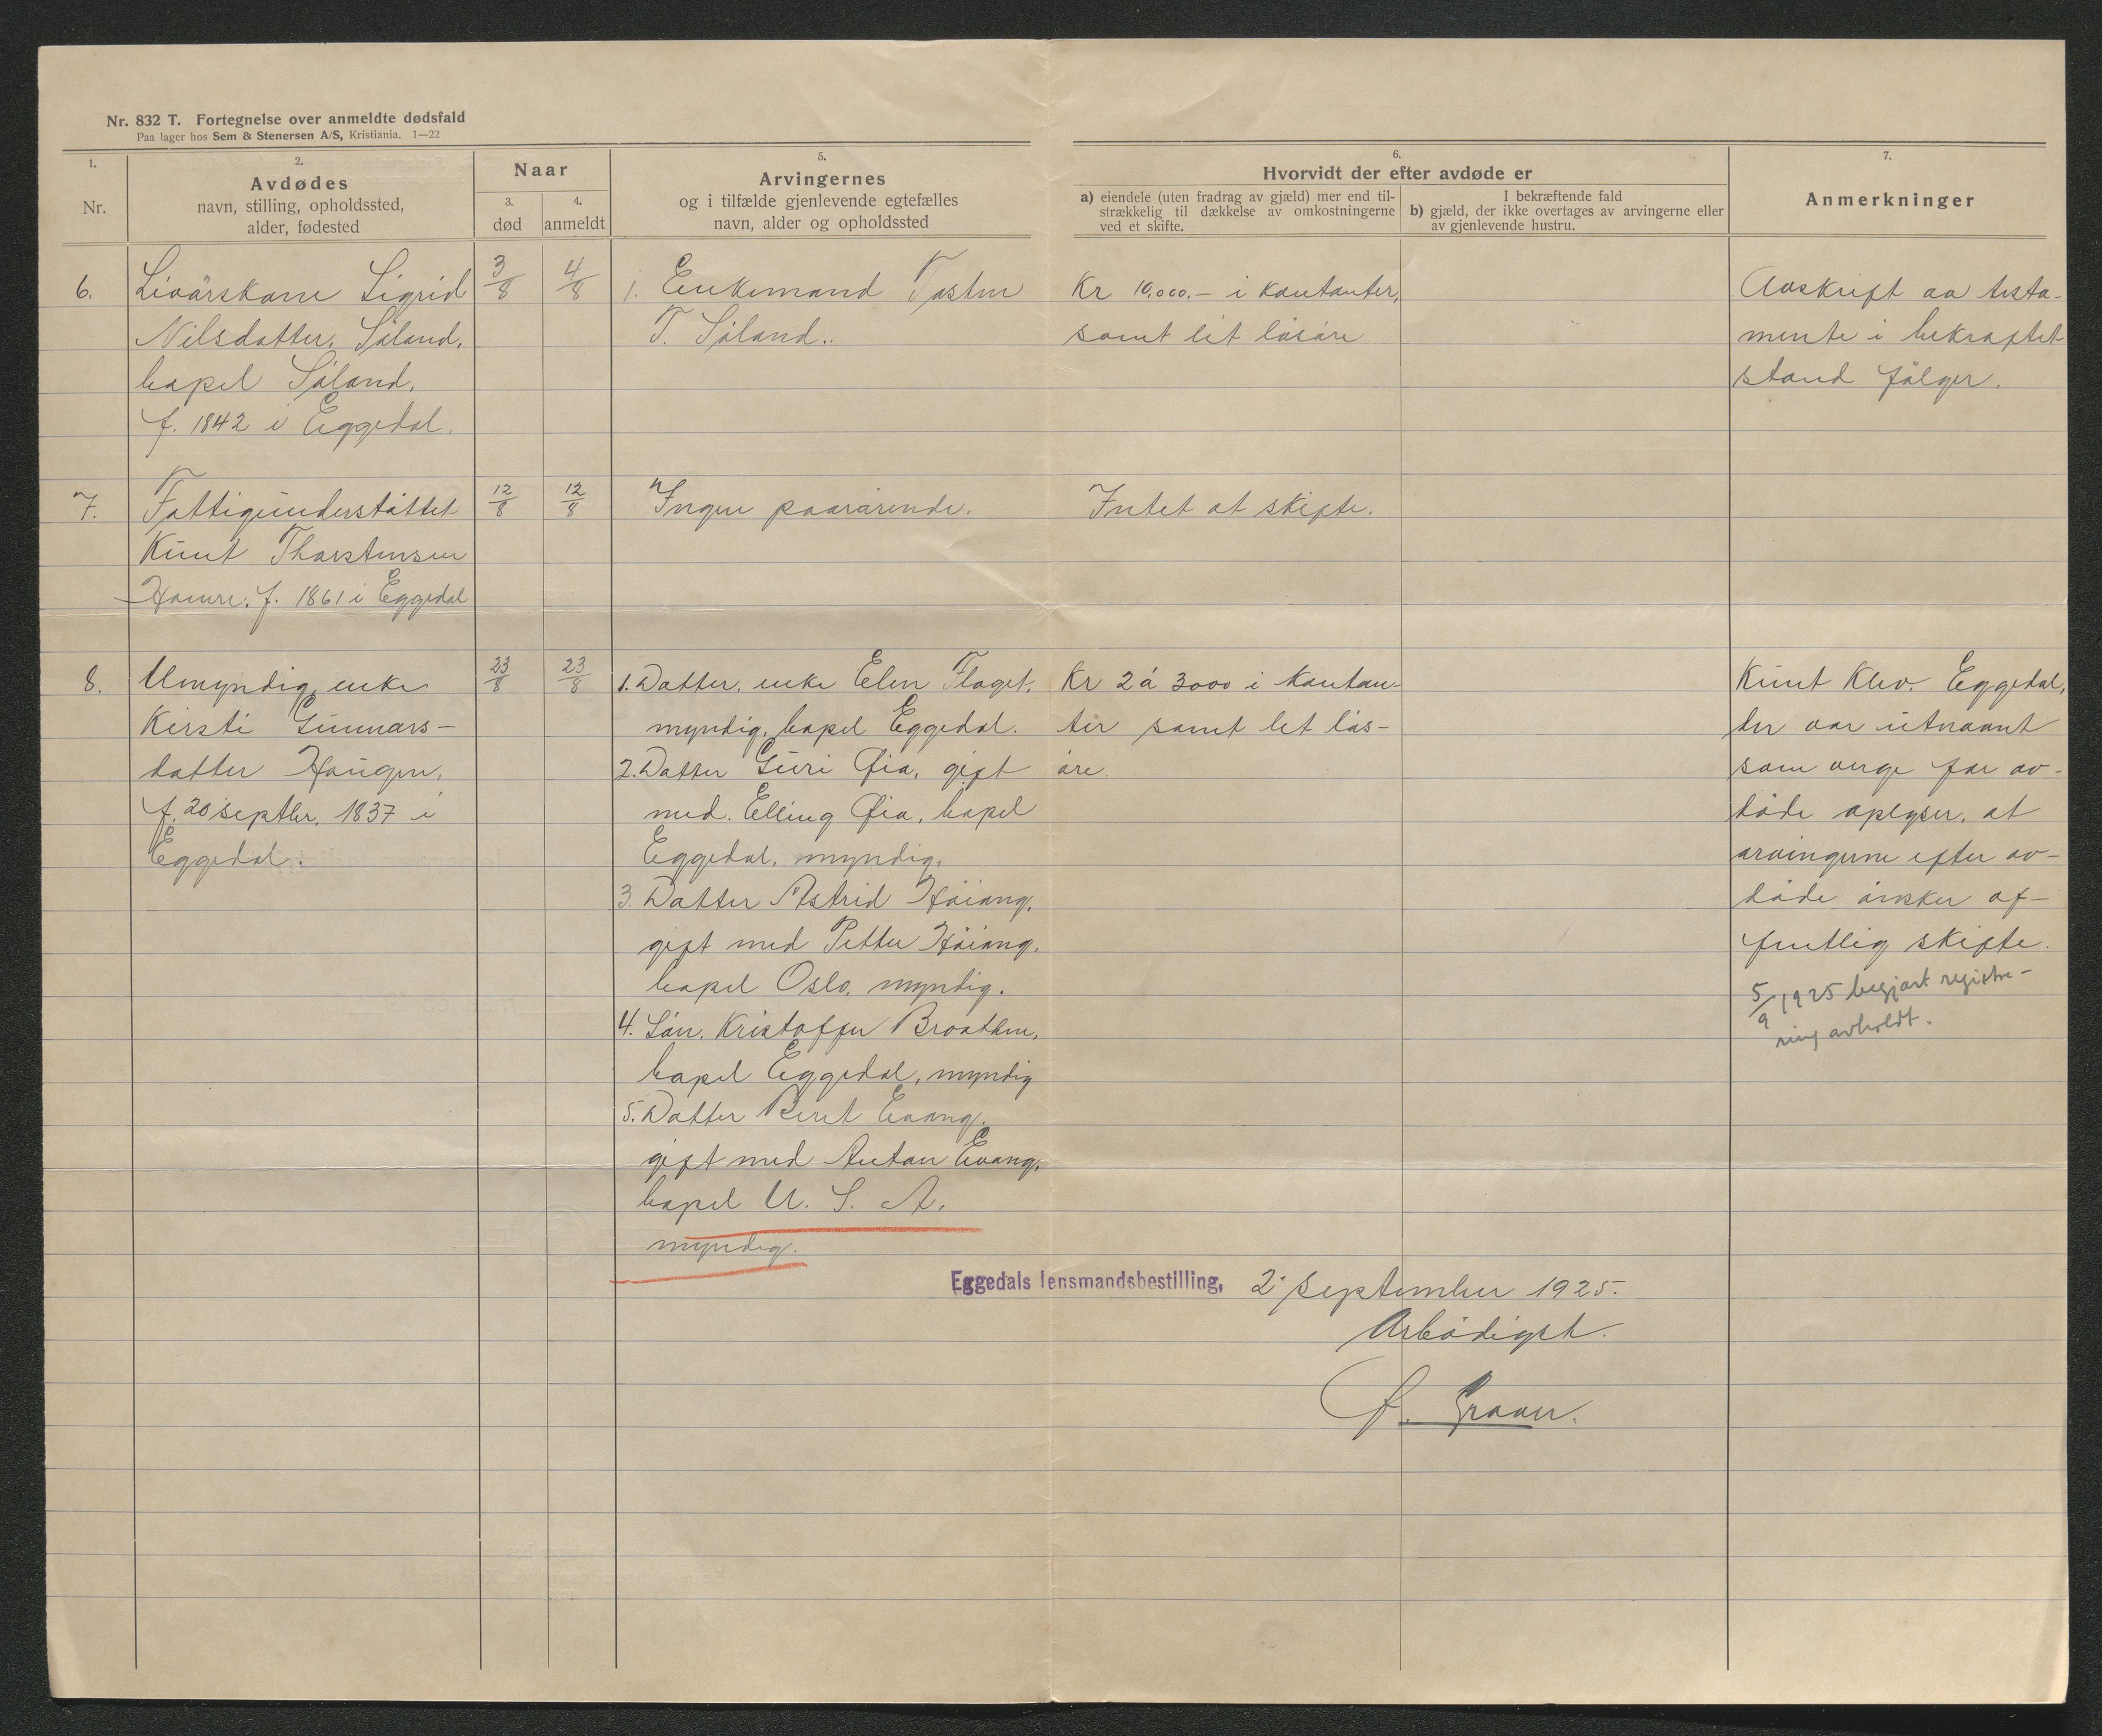 Nr. 832 T. Fortegnelse over anmeldte dødsfald
Paa lager hos Sem & Stenersen A/S, Kristiania. 1—22
1.
Nr.
2.
Avdødes
navn, stilling, opholdssted,
alder, fødested
Naar
3.
død
4.
anmeldt
5.
Arvingernes
og i tilfælde gjenlevende egtefælles
navn, alder og opholdssted
6.
Hvorvidt der efter avdøde er
a) eiendele (uten fradrag av gjæld) mer end til-
strækkelig til dækkelse av omkostningerne
ved et skifte.
I bekræftende fald
b) gjæld, der ikke overtages av arvingerne eller
av gjenlevende hustru.
7.
Anmerkninger
6.
Livörskone Sigrid
Nilsdatter, Söland,
bopel Söland,
f. 1842 i Eggedal.
3/8
4/8
1. Enkemand Tosten
T. Söland.
Kr 10,000.- i kontanter,
samt lit lösöre
Avskrift av testa-
mente i bekraftet
stand fölger.
7.
Fattigunderstöttet
Knut Thorstensen
Homre. f. 1861 i Eggedal
12/8
12/8
Ingen paarörende.
Intet at skifte.
8.
Umyndig enke
Kirsti Gunnars-
datter Haugen,
f. 20 septbr. 1837 i
Eggedal.
23/8
23/8
1. Datter, enke Elen Flaget,
myndig, bopel Eggedal.
2. Datter Guri Øia, gift
med. Elling Øia, bopel
Eggedal, myndig.
3. Datter Astrid Höiang,
gift med Petter Höiang,
bopel Oslo, myndig.
4. Sön, Kristoffer Broathen,
bopel Eggedal, myndig
5. Datter Beret Evang,
gift med Anton Evang,
bopel U. S. A.
myndig.
Kr 2 á 3000 i kontan-
ter samt let lös-
öre.
Knut Klev. Eggedal,
der var utnavnt
som verge for av-
döde oplyser, at
arvingerne efter av-
döde önsker of-
fentlig skifte.
5/9 1925 begjært registre-
ring avholdt.
Eggedals lensmandsbestilling, 2. september 1925.
Ærbödigst.
Graver.